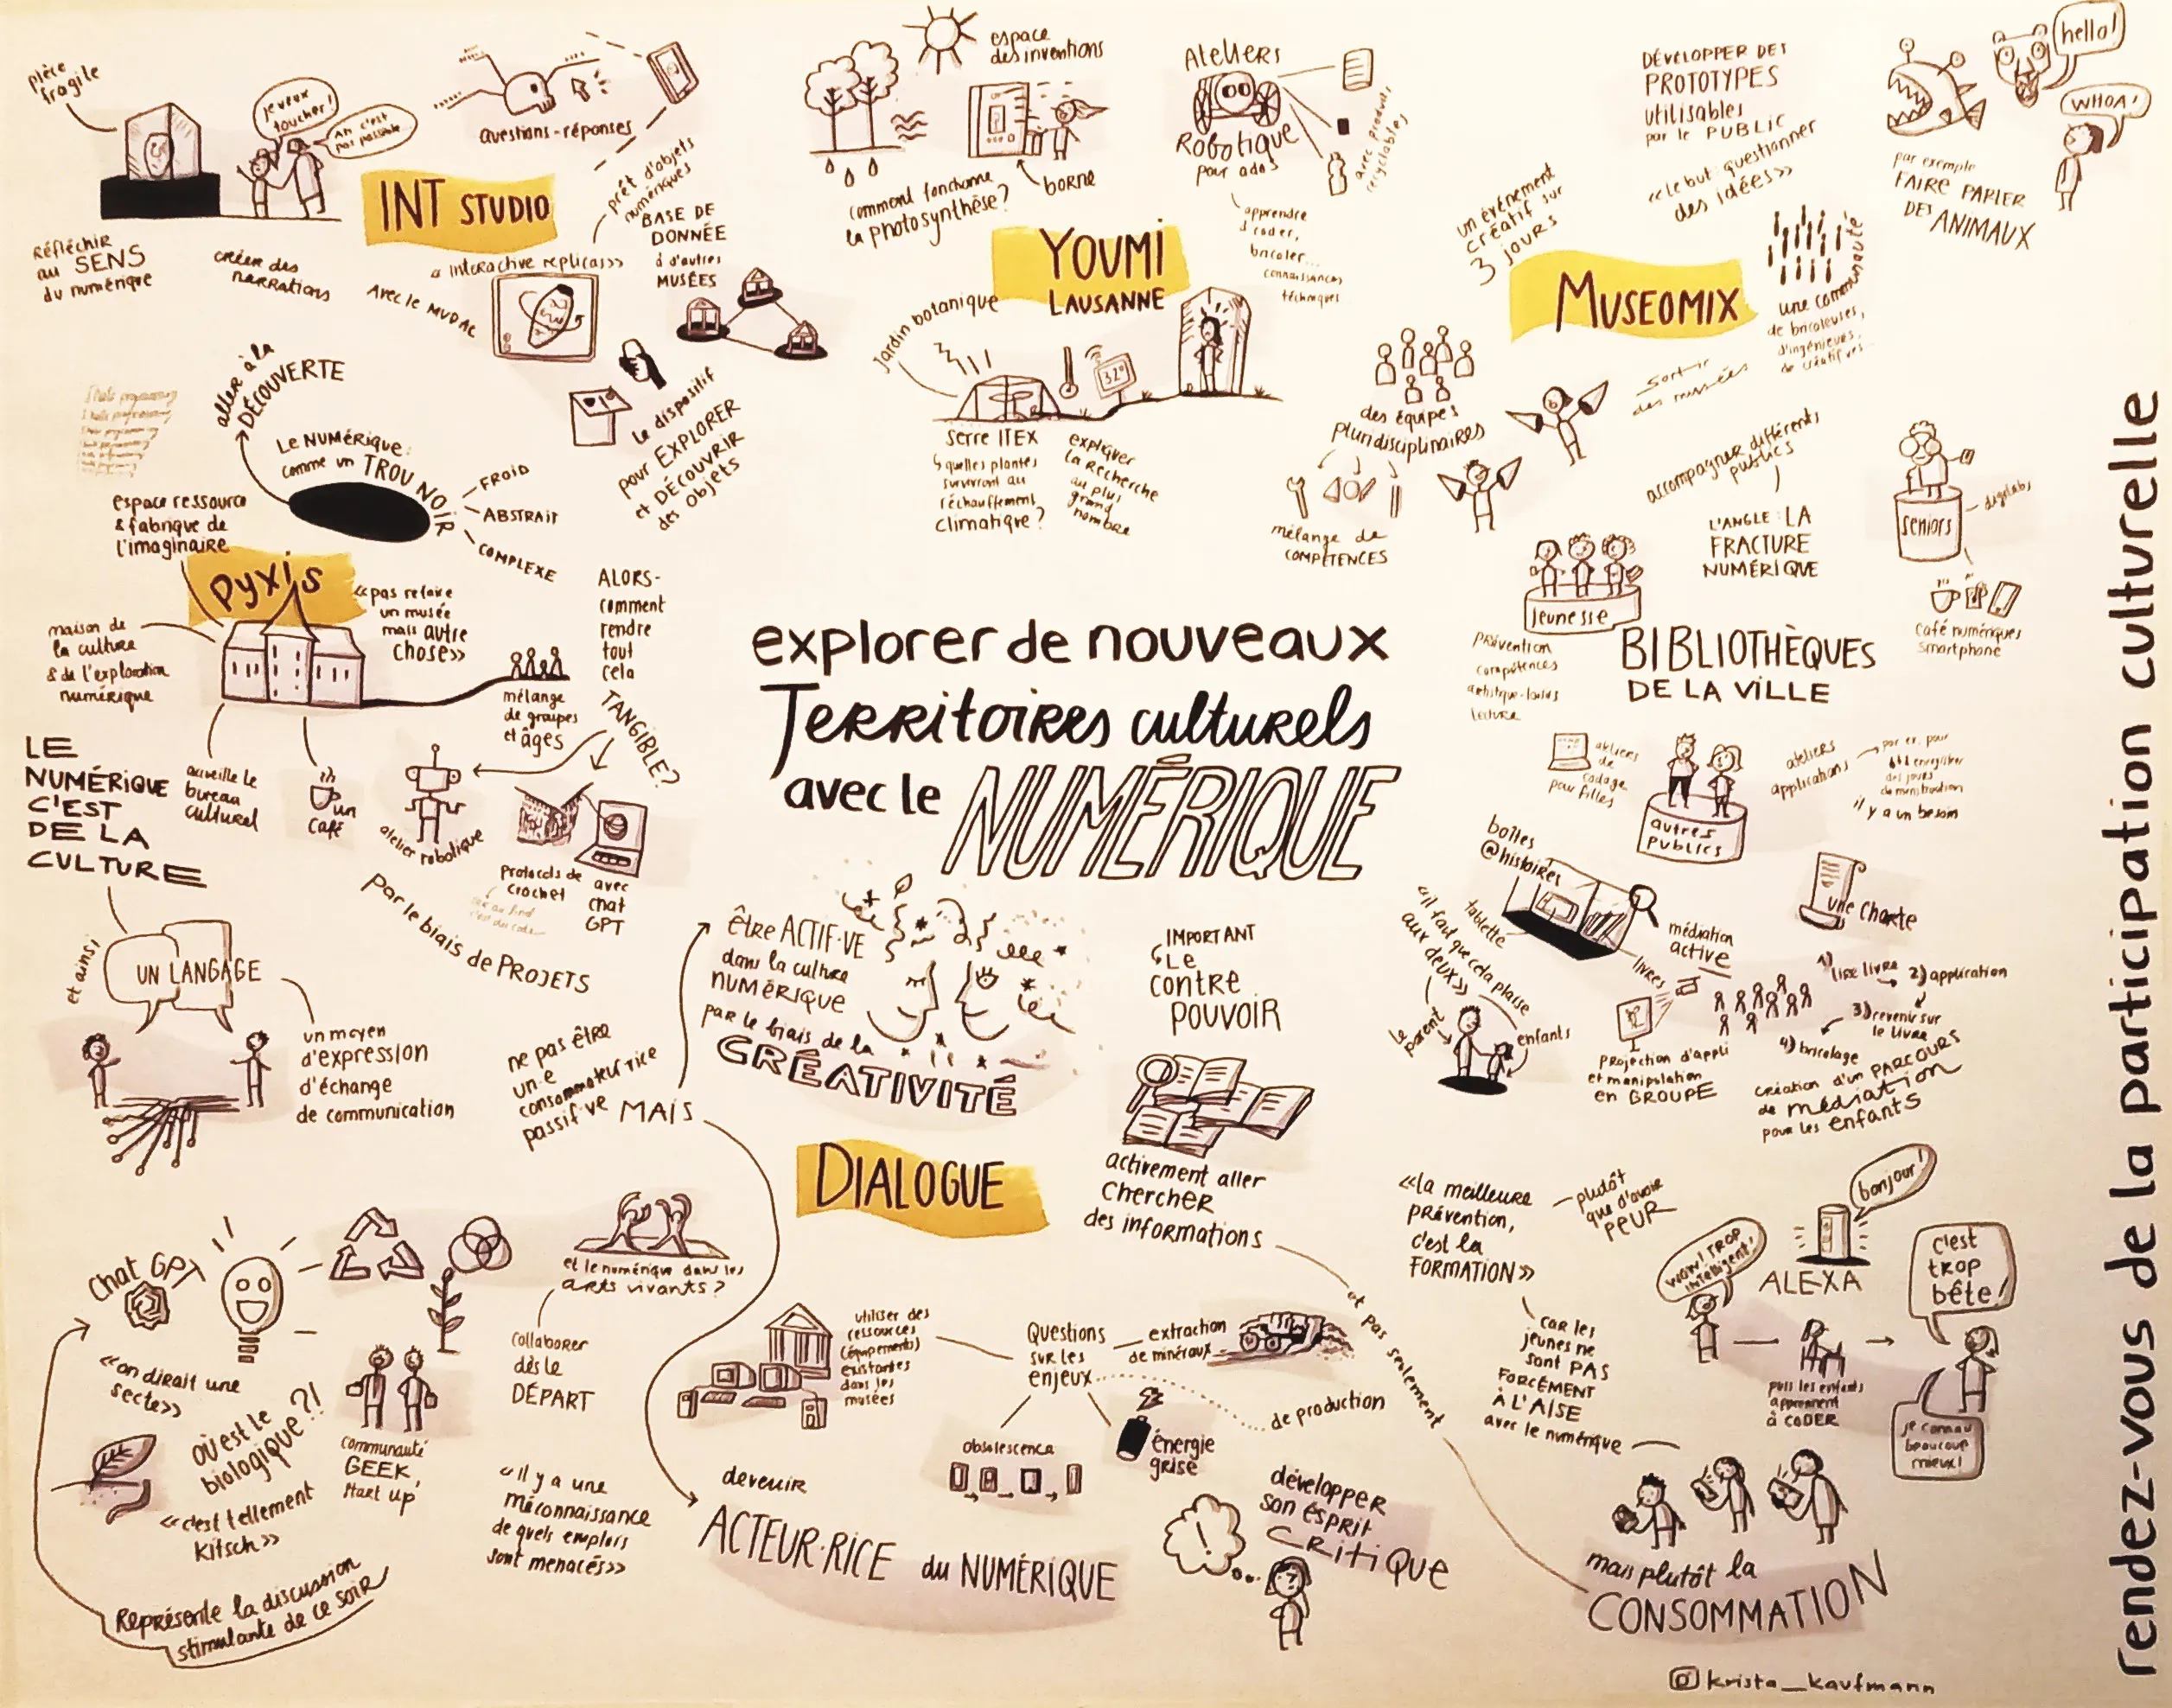 pièce
fragile
je veux
toucher!
Ah c'est
pas possible
questions-réponses
INT STUDIO
prêt d'objets
numériques
BASE DE
DONNÉE
d'autres
MUSÉES
Réfléchir
au SENS
du numérique
créer des
narrations
« interactive replicas»
Avec le MUDAC
le dispositif
pour EXPLORER
et DÉCOUVRIR
des objets
aller à la
DÉCOUVERTE
Le NUMérique:
comme un TROU NOIR
FROID
ABSTRAIT
COMPLEXE
espace ressource
& fabrique de
l'imaginaire
pyxis
maison de
la culture
& de l'exploration
numérique
«pas refaire
un musée
mais autre
chose»
accueille le
bureau
culturel
un
café
mélange
de groupes
et âges
ALORS-
comment
rendre
tout
cela
TANGIBLE?
atelier robotique
Protocols de
crochet
avec
chat
GPT
par le biais de PROJETS
LE
NUMÉRIQUE
C'EST
DE LA
CULTURE
et ainsi
UN LANGAGE
un moyen
d'expression
d'échange
de communication
espace
des inventions
comment fonctionne
la photosynthèse?
borne
Ateliers
Robotique
pour ados
avec produits
recyclables
apprendre
à coder,
bricoler...
connaissances
techniques
YOUMI
LAUSANNE
Jardin botanique
32°
serre ITEX
quelles plantes
survivront au
réchauffement
climatique?
expliquer
la recherche
au plus
grand
nombre
DÉVELOPPER DES
PROTOTYPES
utilisables
par le PUBLIC
«le but: questionner
des idées»
hello!
WHOA!
par exemple
FAIRE PARLER
DES ANIMAUX
un événement
créatif sur
3 jours
MUSEOMIX
une communauté
de bricoleuses,
d'ingénieurs,
de créatif·ves...
des équipes
pluridisciplinaires
mélange de
COMPÉTENCES
sortir
des musées
accompagner différents
publics
L'ANGLE: LA
FRACTURE
NUMÉRIQUE
seniors
digilabs
Café numériques
smartphone
jeunesse
prévention
compétences
lecture
BIBLIOTHÈQUES
DE LA VILLE
ateliers
de
codage
pour filles
autres
publics
ateliers
applications
par ex. pour
enregistrer
des jours
de menstruation
il y a un besoin
boîtes
@histoires
tablette
livres
médiation
active
une charte
«il faut que cela plaise
aux deux»
le parent
enfants
projection d'appli
et manipulation
en GROUPE
1) lire livre
2) application
3) revenir sur
le livre
4) bricolage
création d'un PARCOURS
de médiation
pour les enfants
explorer de nouveaux
Territoires culturels
avec le NUMÉRIQUE
ne pas être
un·e
consommateur·rice
passif·ve MAIS
être ACTIF·VE
dans la culture
numérique
par le biais de la
CRÉATIVITÉ
IMPORTANT
Le
contre
pouvoir
activement aller
chercher
des informations
et pas seulement
DIALOGUE
Chat GPT
«on dirait une
secte»
où est le
biologique?!
«c'est tellement
kitsch»
communauté
GEEK,
start up
Représente la discussion
stimulante de ce soir
et le numérique dans les
arts vivants?
collaborer
dès le
DÉPART
«il y a une
méconnaissance
de quels emplois
sont menacés»
utiliser des
ressources
(équipements)
existantes
dans les
musées
Questions
sur les
enjeux
extraction
de minéraux
de production
obsolescence
énergie
grise
devenir
ACTEUR·RICE du NUMÉRIQUE
développer
son esprit
critique
!
«la meilleure
prévention,
c'est la
FORMATION»
plutôt
que d'avoir
PEUR
car les
jeunes ne
sont PAS
FORCÉMENT
À L'AISE
avec le numérique
mais plutôt la
CONSOMMATION
wow! trop
intelligent!
bonjour!
ALEXA
puis les enfants
apprennent
à CODER
c'est
trop
bête!
je connais
beaucoup
mieux!
rendez-vous de la participation culturelle
krista_kaufmann